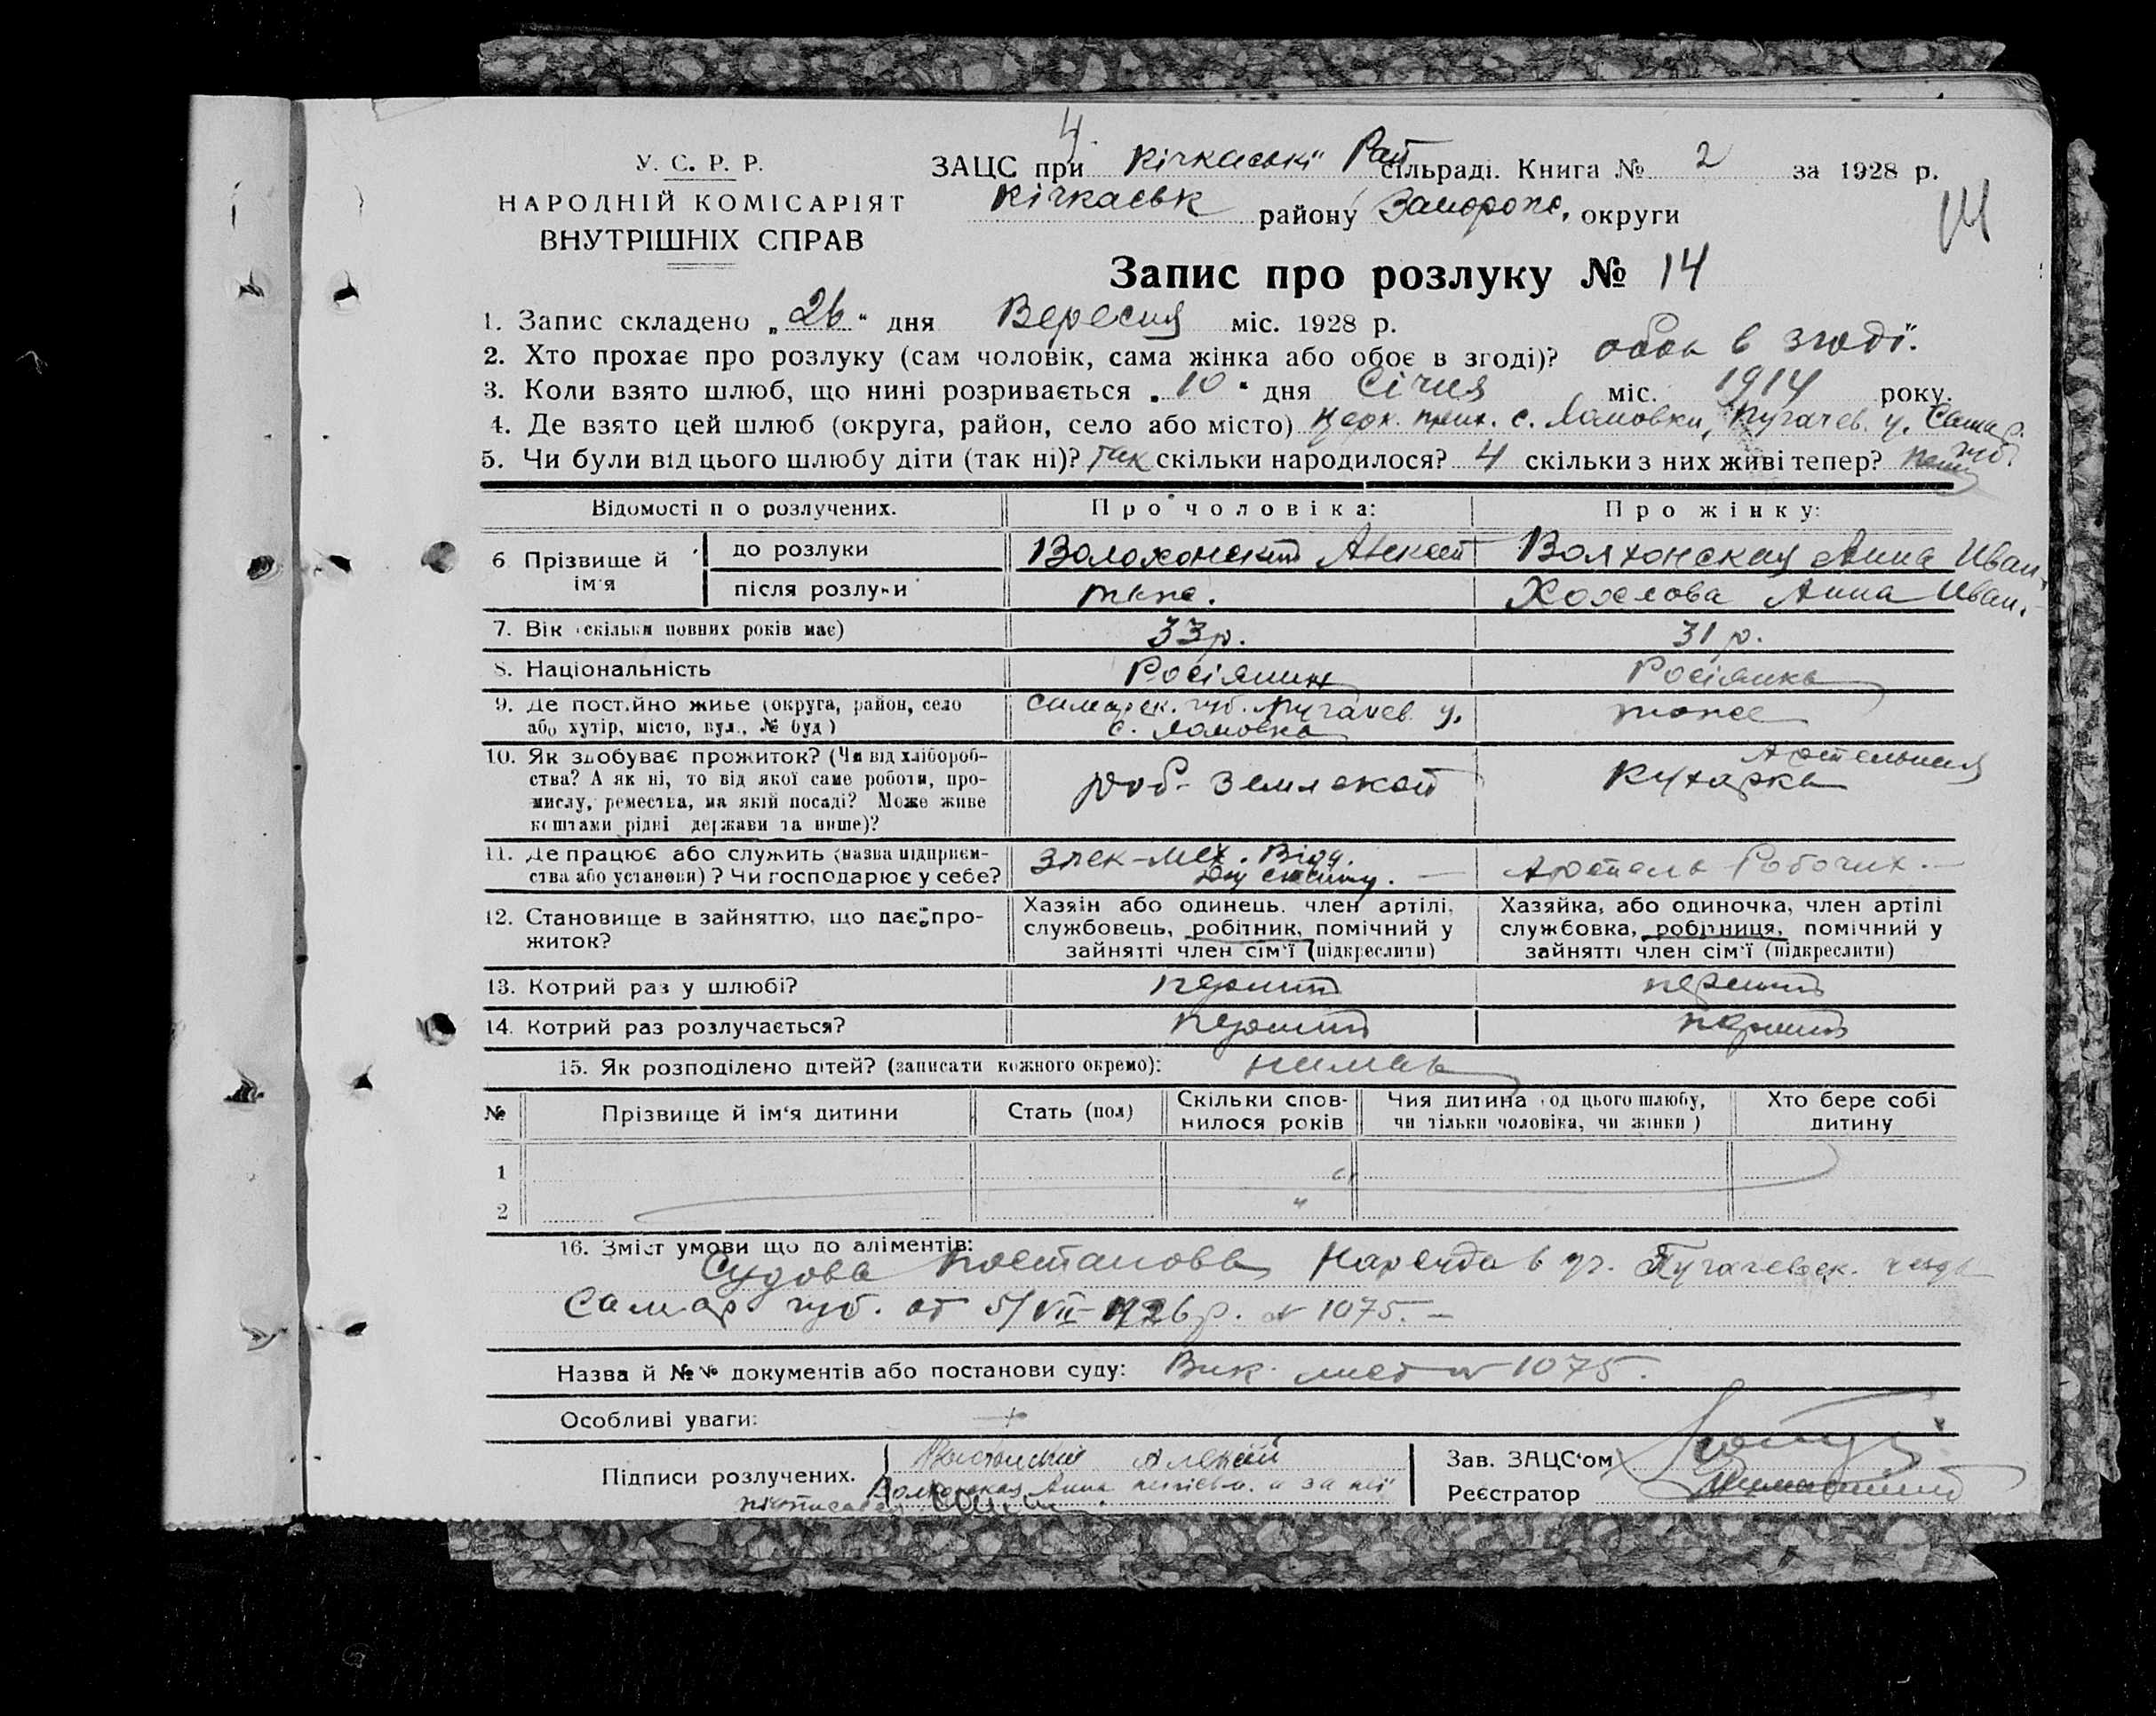 4.
У. С. Р. Р.
НАРОДНІЙ КОМІСАРІЯТ
ВНУТРІШНІХ СПРАВ
ЗАЦС при Кічкаській Рай сільраді. Книга № 2 за 1928 р.
Кічкаськ району Запороже, округи
14
Запис про розлуку № 14
1. Запис складено „26“ дня Вересня міс. 1928 р.
2. Хто прохає про розлуку (сам чоловік, сама жінка або обоє в згоді)? обоє в згоді.
3. Коли взято шлюб, що нині розривається „10“ дня Січня міс. 1914 року.
4. Де взято цей шлюб (округа, район, село або місто) с. Ломовки, Пугачев. у. Самар.
губ.
5. Чи були від цього шлюбу діти (так ні)? Так скільки народилося? 4 скільки з них живі тепер?
Відомості п о розлучених.
Про чоловіка:
Про жінку:
6 Прізвище й ім'я
до розлуки
Волохонский Алексей
Волхонская Анна Иван.
після розлуки
теж.
Хохлова Анна Иван.
7. Вік (скільки повних років має)
33 р.
31 р.
8. Національність
Росіянин
Росіянка
9. Де постійно живе (округа, район, село
або хутір, місто, вул., № буд)
Самарск. губ. Пугачев. у.
с. Ломовка
тоже
10. Як здобуває прожиток? (Чи від хлібороб-
ства? А як ні, то від якої саме роботи, про-
мислу, ремества, на якій посаді? Може живе
коштами рідні держави та инше)?
роб- землекоп
Артельная
кухарка
11. Де працює або служить (назва підприєм-
ства або установи)? Чи господарює у себе?
Элек-Мех. Відд.
Дніпрельстану.
Артель Робочих.
12. Становище в зайняттю, що дає про-
житок?
Хазяїн або одинець. член артілі,
службовець, робітник, помічний у
зайнятті член сім'ї (підкреслити)
Хазяйка, або одиночка, член артілі
службовка, робітниця, помічний у
зайнятті член сім'ї (підкреслити)
13. Котрий раз у шлюбі?
перший
перший
14. Котрий раз розлучається?
перший
перший
15. Як розподілено дітей? (записати кожного окремо): немає
№
Прізвище й ім'я дитини
Стать (пол)
Скільки спов-
нилося років
Чия дитина (од цього шлюбу,
чи тільки чоловіка, чи жінки)
Хто бере собі
дитину
1
2
16. Зміст умови що до аліментів:
Судова постанова Нарсуда 6 уч. Пугачевск. уезда
Самар губ. от 5/VII-1926 р. № 1075. –
Назва й №№ документів або постанови суду: Вик. лист № 1075.
Особливі уваги:
Підписи розлучених.
Волхонский Алексей
Волхонская Анна и за неї
Зав. ЗАЦС'ом
Реєстратор